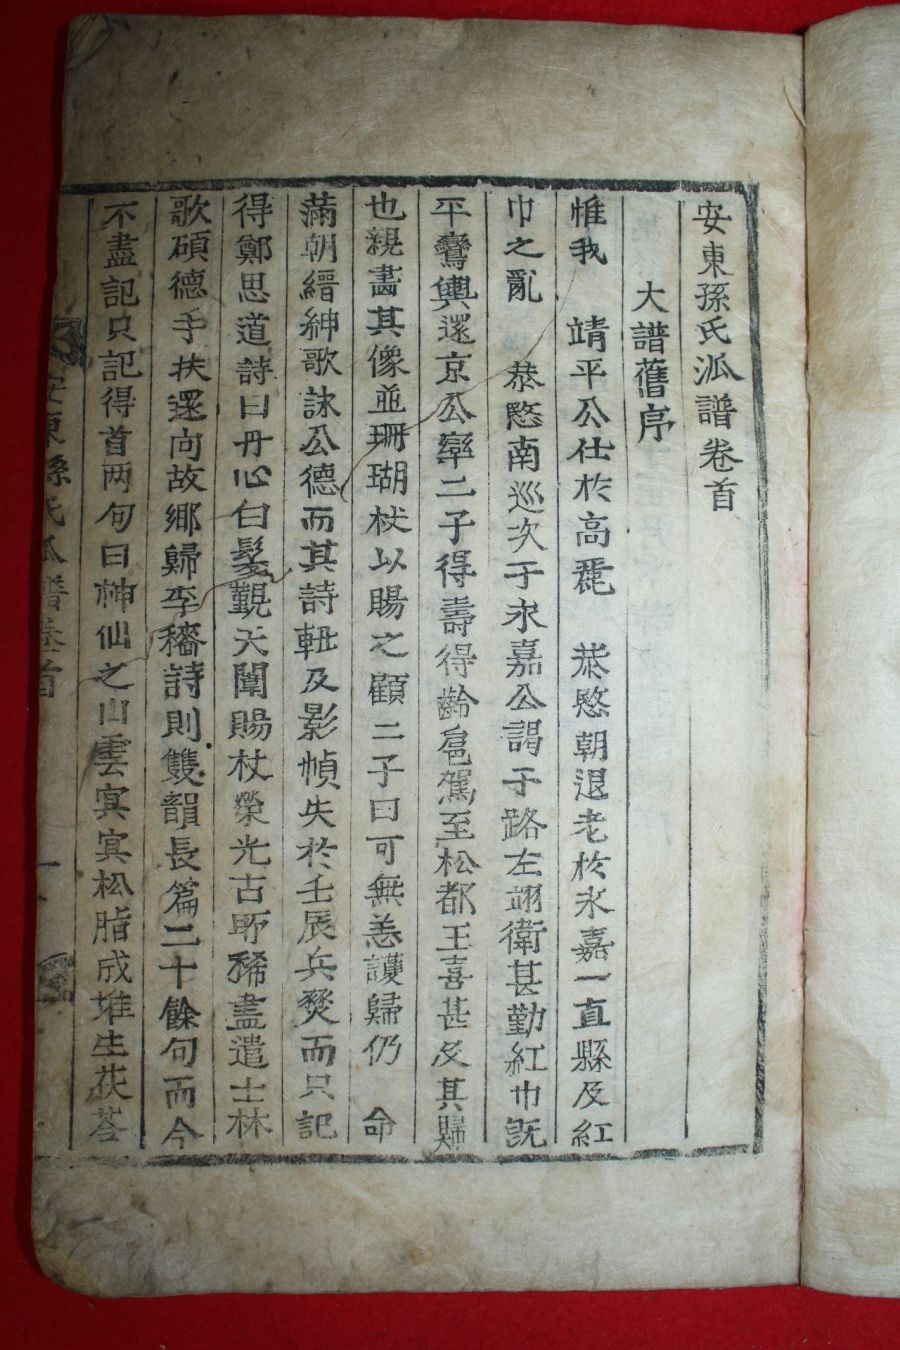 安東孫氏派譜卷首
大譜舊序
惟我　靖平公仕於高麗　恭愍朝退老於永嘉一直縣及紅
巾之亂　恭愍南巡次于永嘉公謁于路左翊衛甚勤紅巾旣
平鸞輿還京公率二子得壽得齡扈駕至松都王喜甚及其歸
也親畵其像並珊瑚杖以賜之顧二子曰可無恙護歸仍　命
滿朝縉紳歌詠公德而其詩軸及影幀失於壬辰兵燹而只記
得鄭思道詩曰丹心白髮觀天闈賜杖榮光古所稀盡遣士林
歌碩德手扶還向故鄉歸李穡詩則雙韻長篇二十餘句而今
不盡記只記得首两句曰神仙之山雲㝠㝠松脂成堆生茯苓
安東孫氏派譜卷首
一